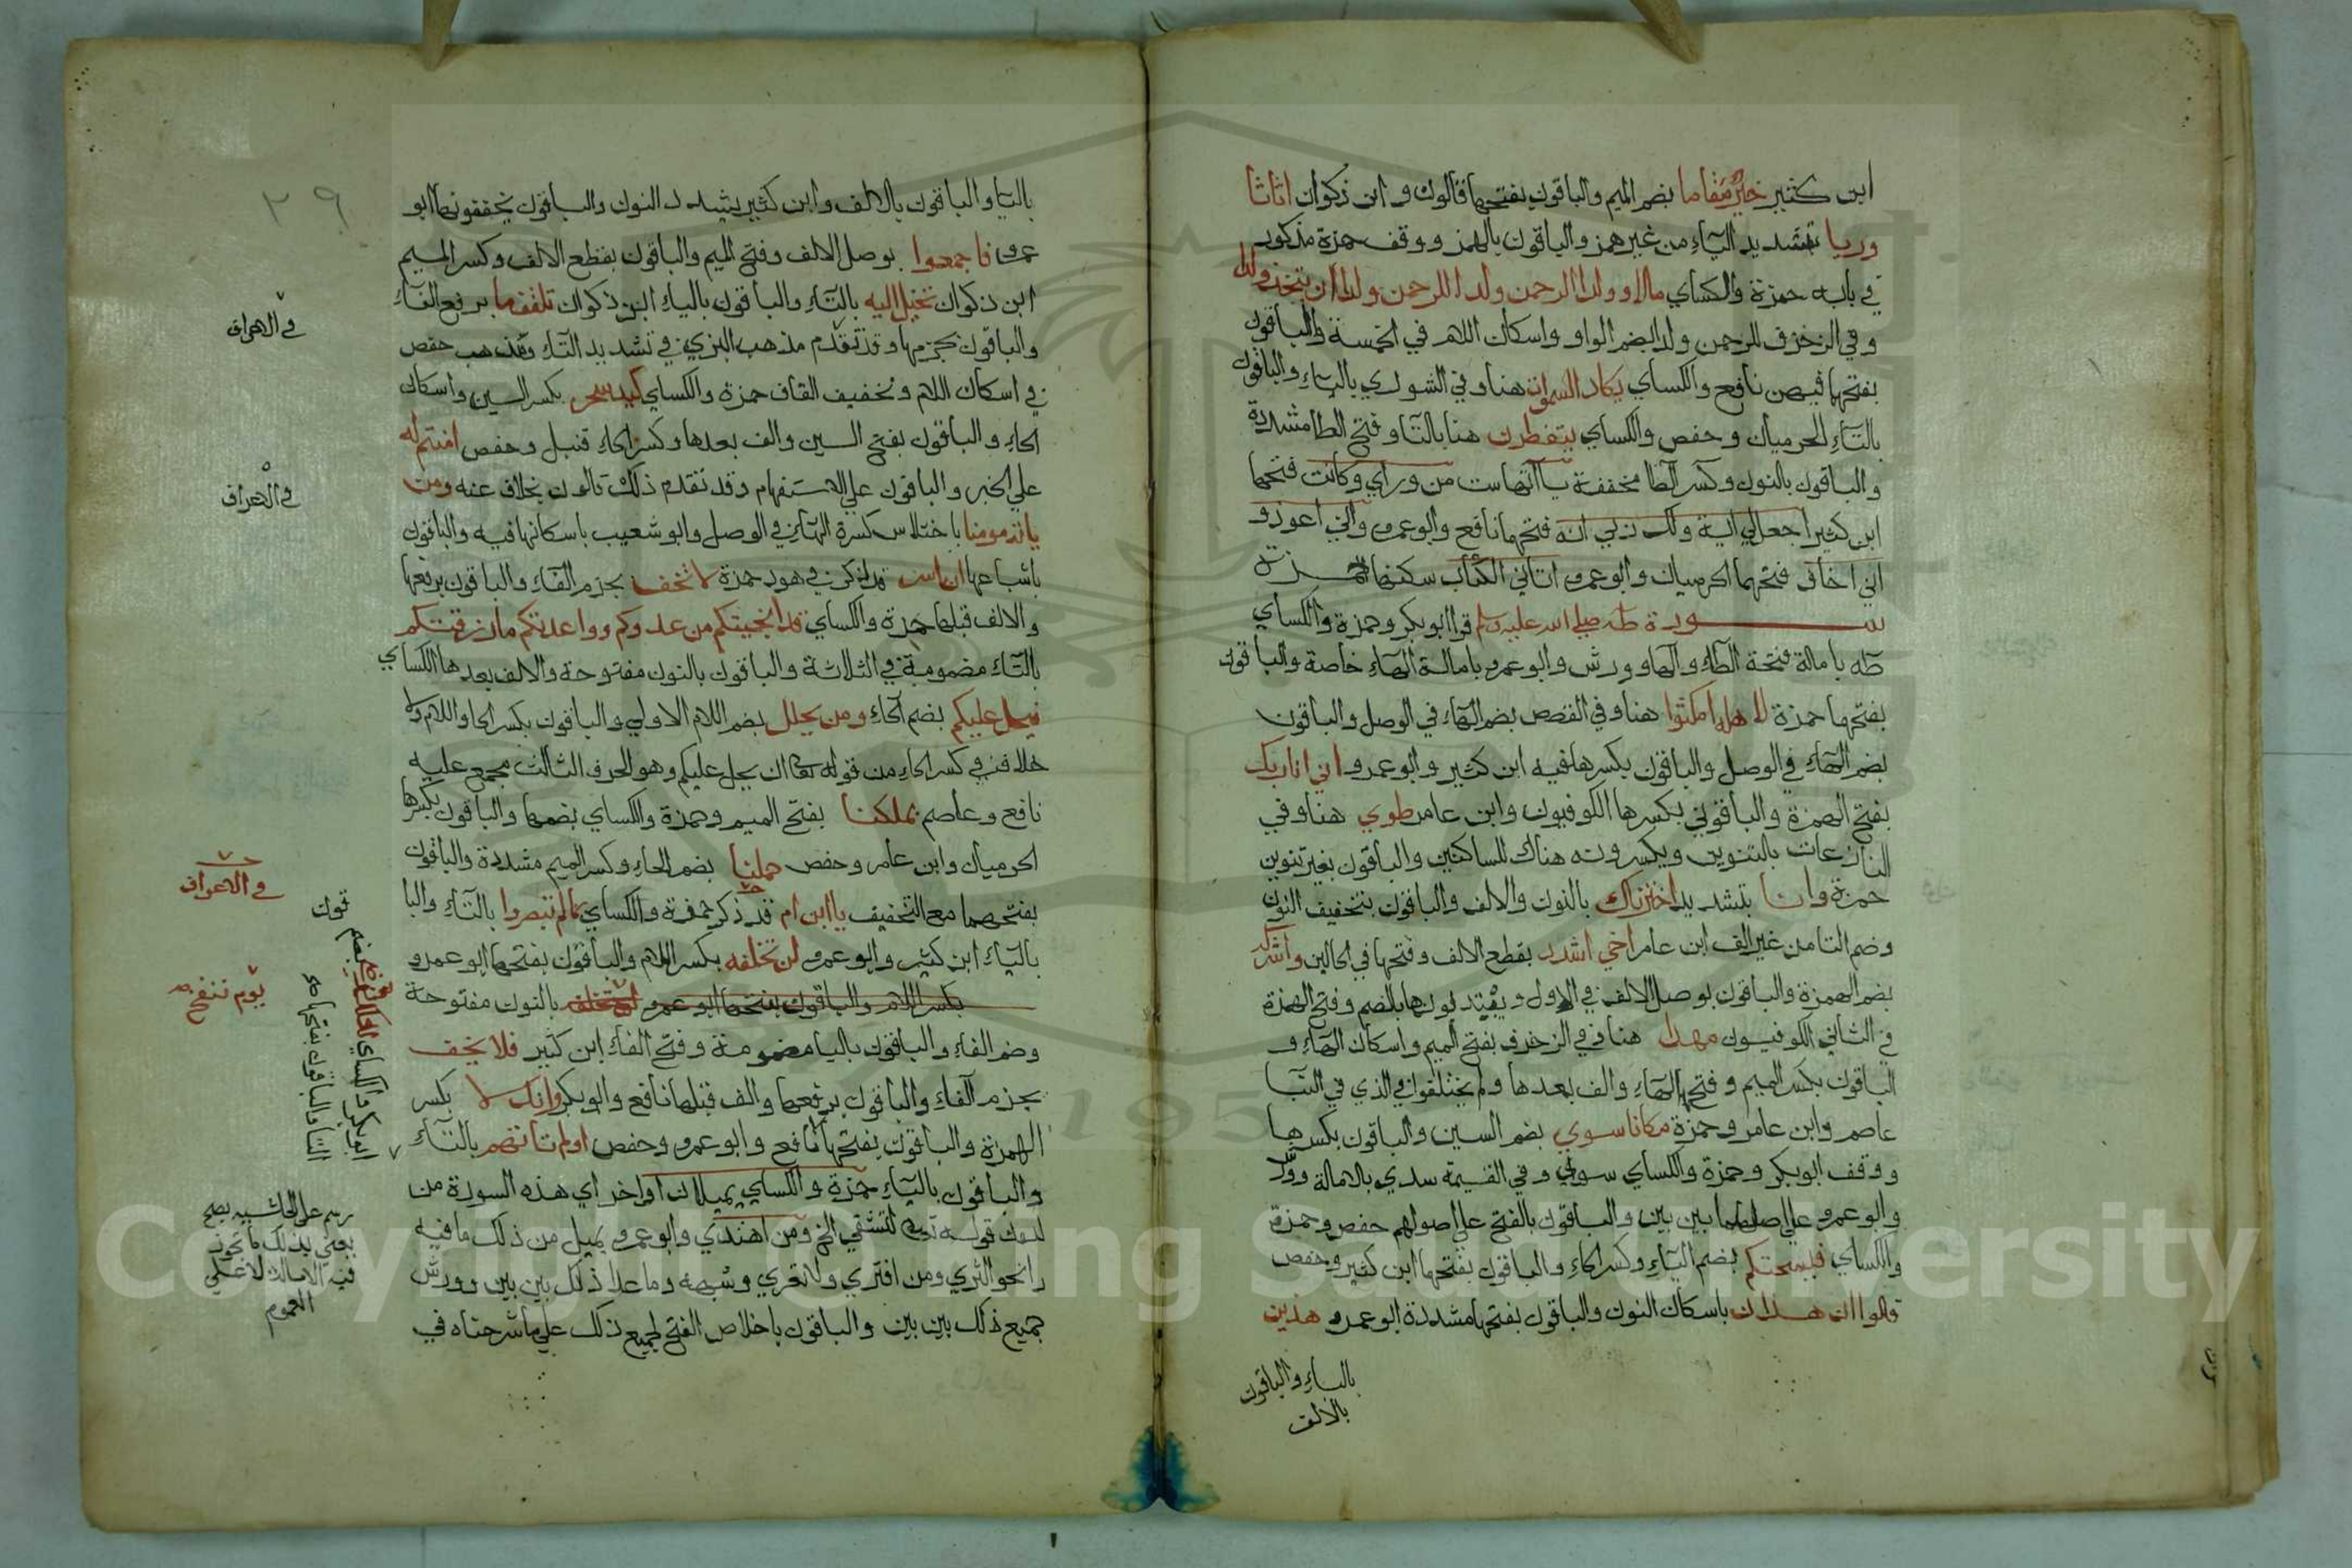 ابن كثير خير مقاما بضم الميم والباقون بفتحها قالون وابن ذكوان اثاثا
وريا بتشديد الياء من غير همز والباقون بالهمز ووقف حمزة مذكور
في بابه حمزة والكساي مالا وولدا الرحمن ولدا للرحمن ولدا ان يتخذ ولدا
وفي الزخرف للرحمن ولد بضم الواو واسكان اللام في الخمسة والباقون
بفتحها فيهن نافع والكساي يكاد السموات هنا وفي الشوري بالياء والباقون
بالتاء الحرميان وحفص والكساي يتفطرن هنا بالتا وفتح الطا مشددة
والباقون بالنون وكسر الطا مخففة يااتها ست من وراي وكانت فتحها
ابن كثير اجعل لي اية ولك ربي انه فتحهما نافع وابو عمرو واني اعوذ و
اني اخاف فتحهما الحرميان وابو عمرو اتاني الكتاب سكنها حمزة
سورة طه صلي الله عليه وسلم قرا ابو بكر وحمزة والكساي
طه بامالة فتحة الطاء والها وورش وابو عمرو بامالة الهاء خاصة والباقون
بفتحهما حمزة لاهله امكثوا هنا وفي القصص بضم الهاء في الوصل والباقون
بضم الهاء في الوصل والباقون بكسرها فيه ابن كثير وابو عمرو اني انا ربك
بفتح الهمزة والباقون بكسرها الكوفيون وابن عامر طوي هنا وفي
النازعات بالتنوين ويكسرونه هناك للساكنين والباقون بغير تنوين
حمزة وانا بتشديد اخترناك بالنون والالف والباقون بتخفيف النون
وضم التا من غير الف ابن عامر اخي اشدد بقطع الالف وفتحها في الحالين واشركه
بضم الهمزة والباقون بوصل الالف في الاول ويبتدئونها بالضم وفتح الهمزة
في الثاني الكوفيون مهدا هنا وفي الزخرف بفتح الميم واسكان الهاء و
الباقون بكسر الميم وفتح الهاء والف بعدها ولم يختلفوا في الذي في النبا
عاصم وابن عامر وحمزة مكانا سوي بضم السين والباقون بكسرها
ووقف ابو بكر وحمزة والكساي سوي وفي القيمة سدي بالامالة وورش
وابو عمرو علي اصلهما بين بين والباقون بالفتح علي اصولهم حفص وحمزة
والكساي فيسحتكم بضم الياء وكسر الحاء والباقون بفتحهما ابن كثير وحفص
قالوا ان هذان باسكان النون والباقون بفتحها مشددة ابو عمرو هذين
بالياء والباقون
بالالف
٢٩
بالتا والباقون بالالف وابن كثير يشدد النون والباقون يخففونها ابو
عمرو فاجمعوا بوصل الالف وفتح الميم والباقون بقطع الالف وكسر الميم
ابن ذكوان تخيل اليه بالتاء والباقون بالياء ابن ذكوان تلقف ما برفع الفاء
والباقون بجزمها وقد تقدم مذهب البزي في تشديد التاء ومذهب حفص
في اسكان اللام وتخفيف القاف حمزة والكساي كيد سحر بكسر السين واسكان
الحاء والباقون بفتح السين والف بعدها وكسر الحاء قنبل وحفص امنتم له
علي الخبر والباقون علي الاستفهام وقد تقدم ذلك قالون بخلاف عنه ومن
ياته مومنا باختلاس كسرة الهاء في الوصل وابو شعيب باسكانها فيه والباقون
باشباعها ان اسر قد ذكر في هود حمزة لا تخف بجزم الفاء والباقون برفعها
والالف قبلها حمزة والكساي قد انجيتكم من عدوكم وواعدتكم ما رزقتكم
بالتاء مضمومة في الثلاثة والباقون بالنون مفتوحة والالف بعدها الكساي
فيحل عليكم بضم الحاء ومن يحلل بضم اللام الاولي والباقون بكسر الحا واللام ولا
خلاف في كسر الحاء من قوله تعا ان يحل عليكم وهو الحرف الثالث مجمع عليه
نافع وعاصم بملكنا بفتح الميم وحمزة والكساي بضمها والباقون بكسرها
الحرميان وابن عامر وحفص حملنا بضم الحاء وكسر الميم مشددة والباقون
بفتحهما مع التخفيف يا ابن ام قد ذكر حمزة والكساي بما لم تبصروا بالتاء والبا
بالياء ابن كثير وابو عمرو لن تخلفه بكسر اللام والباقون بفتحها ابو عمرو
بكسر اللام والباقون بفتحها ابو عمرو بالنون مفتوحة
وضم الفاء والباقون بالياء مضمومة وفتح الفاء ابن كثير فلا يخف
بجزم الفاء والباقون برفعها والف قبلها نافع وابو بكر وانك لا بكسر
الهمزة والباقون بفتحها نافع وابو عمرو وحفص اولم تاتهم بالتاء
والباقون بالياء حمزة والكساي يميلان اواخر اي هذه السورة من
لدن قوله لتشقي الي ومن اهتدي وابو عمرو يميل من ذلك ما فيه
را نحو الثري ومن افتري ولا تعري وشبهه وما عدا ذلك بين بين وورش
جميع ذلك بين بين والباقون باخلاص الفتح لجميع ذلك علي ما شرحناه في
في الاعراف
في الاعراف
في الاعراف
يوم ننفخ
ابو بكر والكساي
التا والباقون بفتحها
رسم علي الحاشيه
يعني بذلك ما يجوز
فيه الامالة لا علي
العموم
Copyright © King Saud University
195